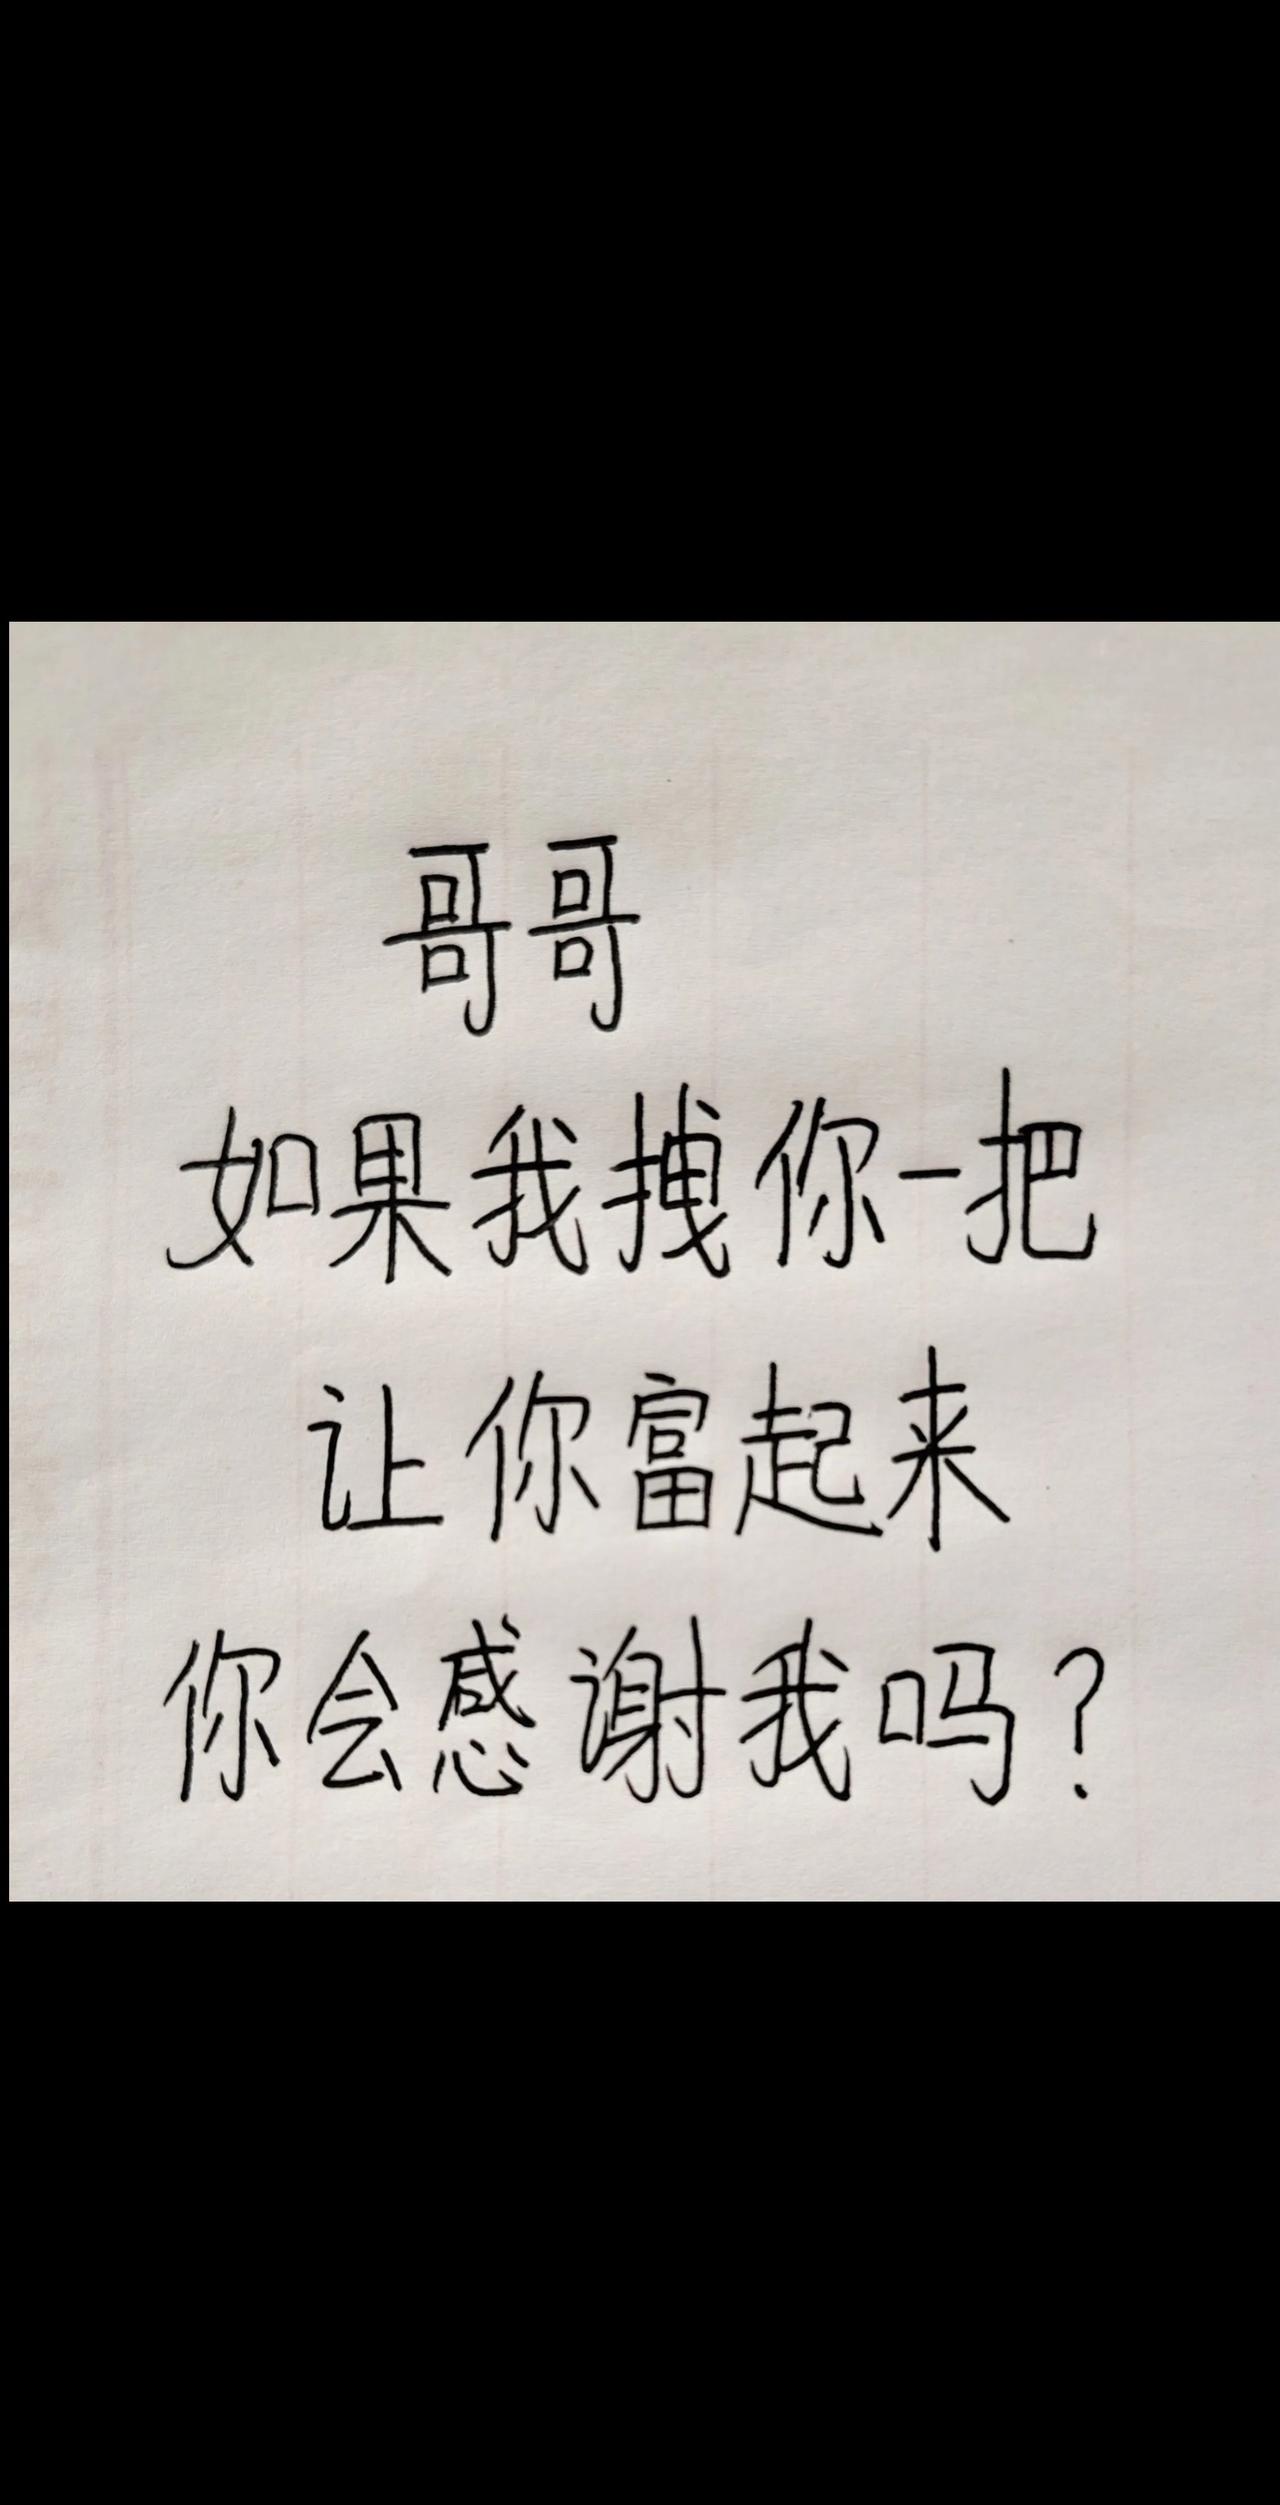 哥哥
如果我拽你一把
让你富起来
你会感谢我吗？